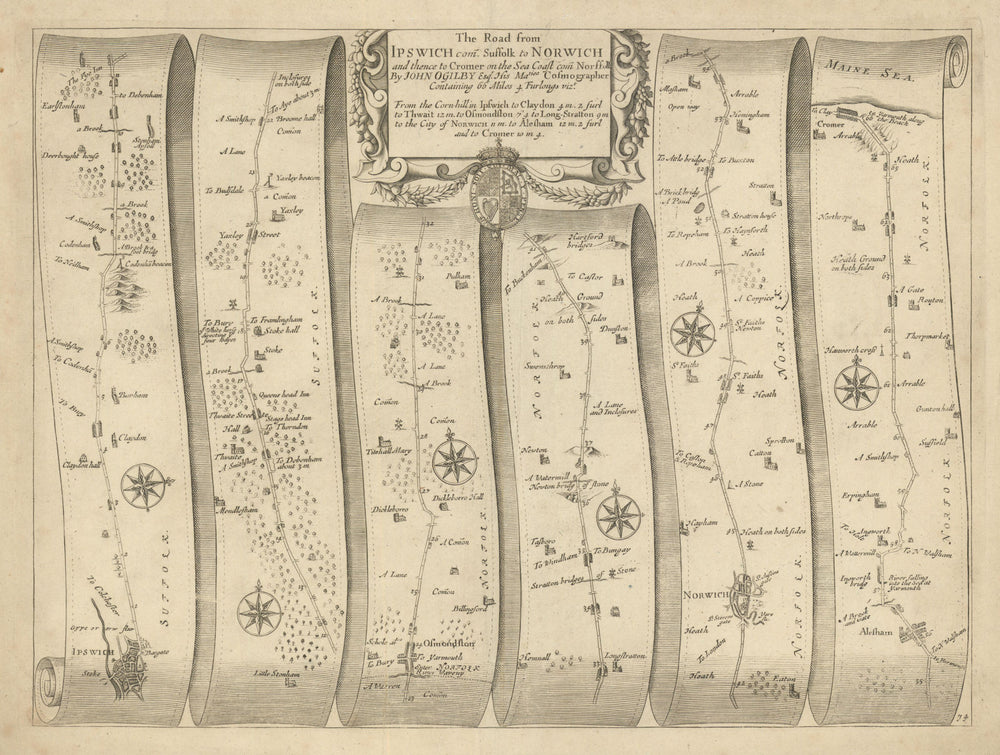 The Road from
IPSWICH com. Suffolk to NORWICH
and thence to Cromer on the Sea Coast com Norff.
By JOHN OGILBY Esq. His Ma.ties Cosmographer
Containing 66 Miles 4 Furlongs viz.t
From the Cornhill in Ipswich to Claydon 4 m. 2 furl
to Thwait 12 m. to Osmondston 7'4 to Long-Stratton 9 m
to the City of NORWICH 11 m. to Alesham 12 m. 2 furl
and to Cromer 10 m 4.
to Debenham
Earlstonham
a Brook
Stonham
Deerbought house
a Brook
A Smithshop
Codenham
A Brook
foot bridg
To Nedham
Codenham beacon
A Smithshop
To Codenham
To Bury
Barham
Claydon
Claydon hall
To Colchester
SUFFOLK
Gype or orwell flu
IPSWICH
Baregate
Stoke
Inclosures
on both side
To Aye about 3 m
A Smithshop
Broome hall
Comon
A Lane
Yaxley beacon
To Buffdale
a Comon
Yaxley
Yaxley Street
SUFFOLK
To Bury
To Framlingham
Stoke hall
Stoke
a Brook
Queens head Inn
Thwaite Street
Stags head Inn
To Thorndon
Hall
Thwaite
To Debenham
about 3 m
A Smithshop
Mendlesham
Little Stonham
32
Pulham
A Brook
A Lane
A Lane
A Brook
Comon
Comon
Titshall Mary
Dickleboro Hall
Dickleboro
NORFOLK
26
A Comon
A Lane
Comon
Billingford
Schole
Osmondston
L Bury
To Yarmouth
Enter NORFOLK
River Waveny
A Warren
Comon
Hartford
bridges
To Buckenham
To Castor
Heath Ground
on both sides
Dunston
NORFOLK
Swomsthrop
A Lane
and Inclosures
37
Newton
A Watermill
Newton bridg of stone
Tasboro
To Bungay
To Windham
Stratton bridges of Stone
Hemnall
Longstratton
a Brook
Masham
Arrable
Open way
Heningham
To Attle bridge
To Buxton
A Brick bridg
A Pond
Stratton
Stratton house
To Repeham
To Haynforth
Heath
A Brook
A Coppice
Heath
St Faiths
Newton
NORFOLK
St Faiths
St Faiths
Heath
To Caston
& Repeham
Sprotton
Catton
A Stone
Haysham
Heath on both sides
NORWICH
NORFOLK
Heath
To London
Heath
Eaton
MAINE SEA.
To Clay
to Yarmouth along
the Beach
Cromer
Arrable
Heath
65
NORFOLK
Northrepe
Heath Ground
on both sides
A Gate
Royton
Thorpmarket
Hanworth cross
Arrable
Gunton hall
Arrable
Suffield
A Smithshop
Erpingham
NORFOLK
To Ingworth
A Watermill
To N. Walsham
Ingworth
bridg
River falling
into the Sea at
Yarmouth
A Brook
and Gate
Alesham
To N. Walsham
55
74